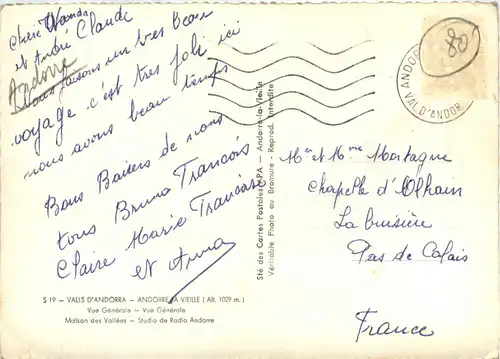 Chère Wanda
et André Claude
Andorre
nous faisons un très beau
voyage c'est très joli ici
nous avons beau temps
Bons Baisers de nous
tous Bruno Francois
Claire Marie Francoise
et Anna
80
ANDORRE
VAL D'ANDOR
Sté des Cartes Postales APA — Andorre-la-Vieille
Véritable Photo au Bromure - Reprod. Interdite
Mr et Mme Montagne
Chapelle d'Olhain
La buissière
Pas de Calais
France
S 19 — VALLS D'ANDORRA — ANDORRE LA VIEILLE (Alt. 1029 m.)
Vue Générale — Vue Générale
Maison des Vallées — Studio de Radio Andorre